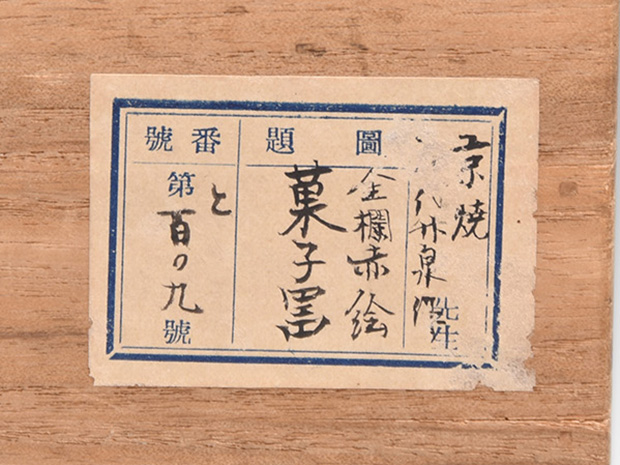 京焼
代竹泉
先生
圖題
金欄赤絵
菓子器
番號
第と百の九號